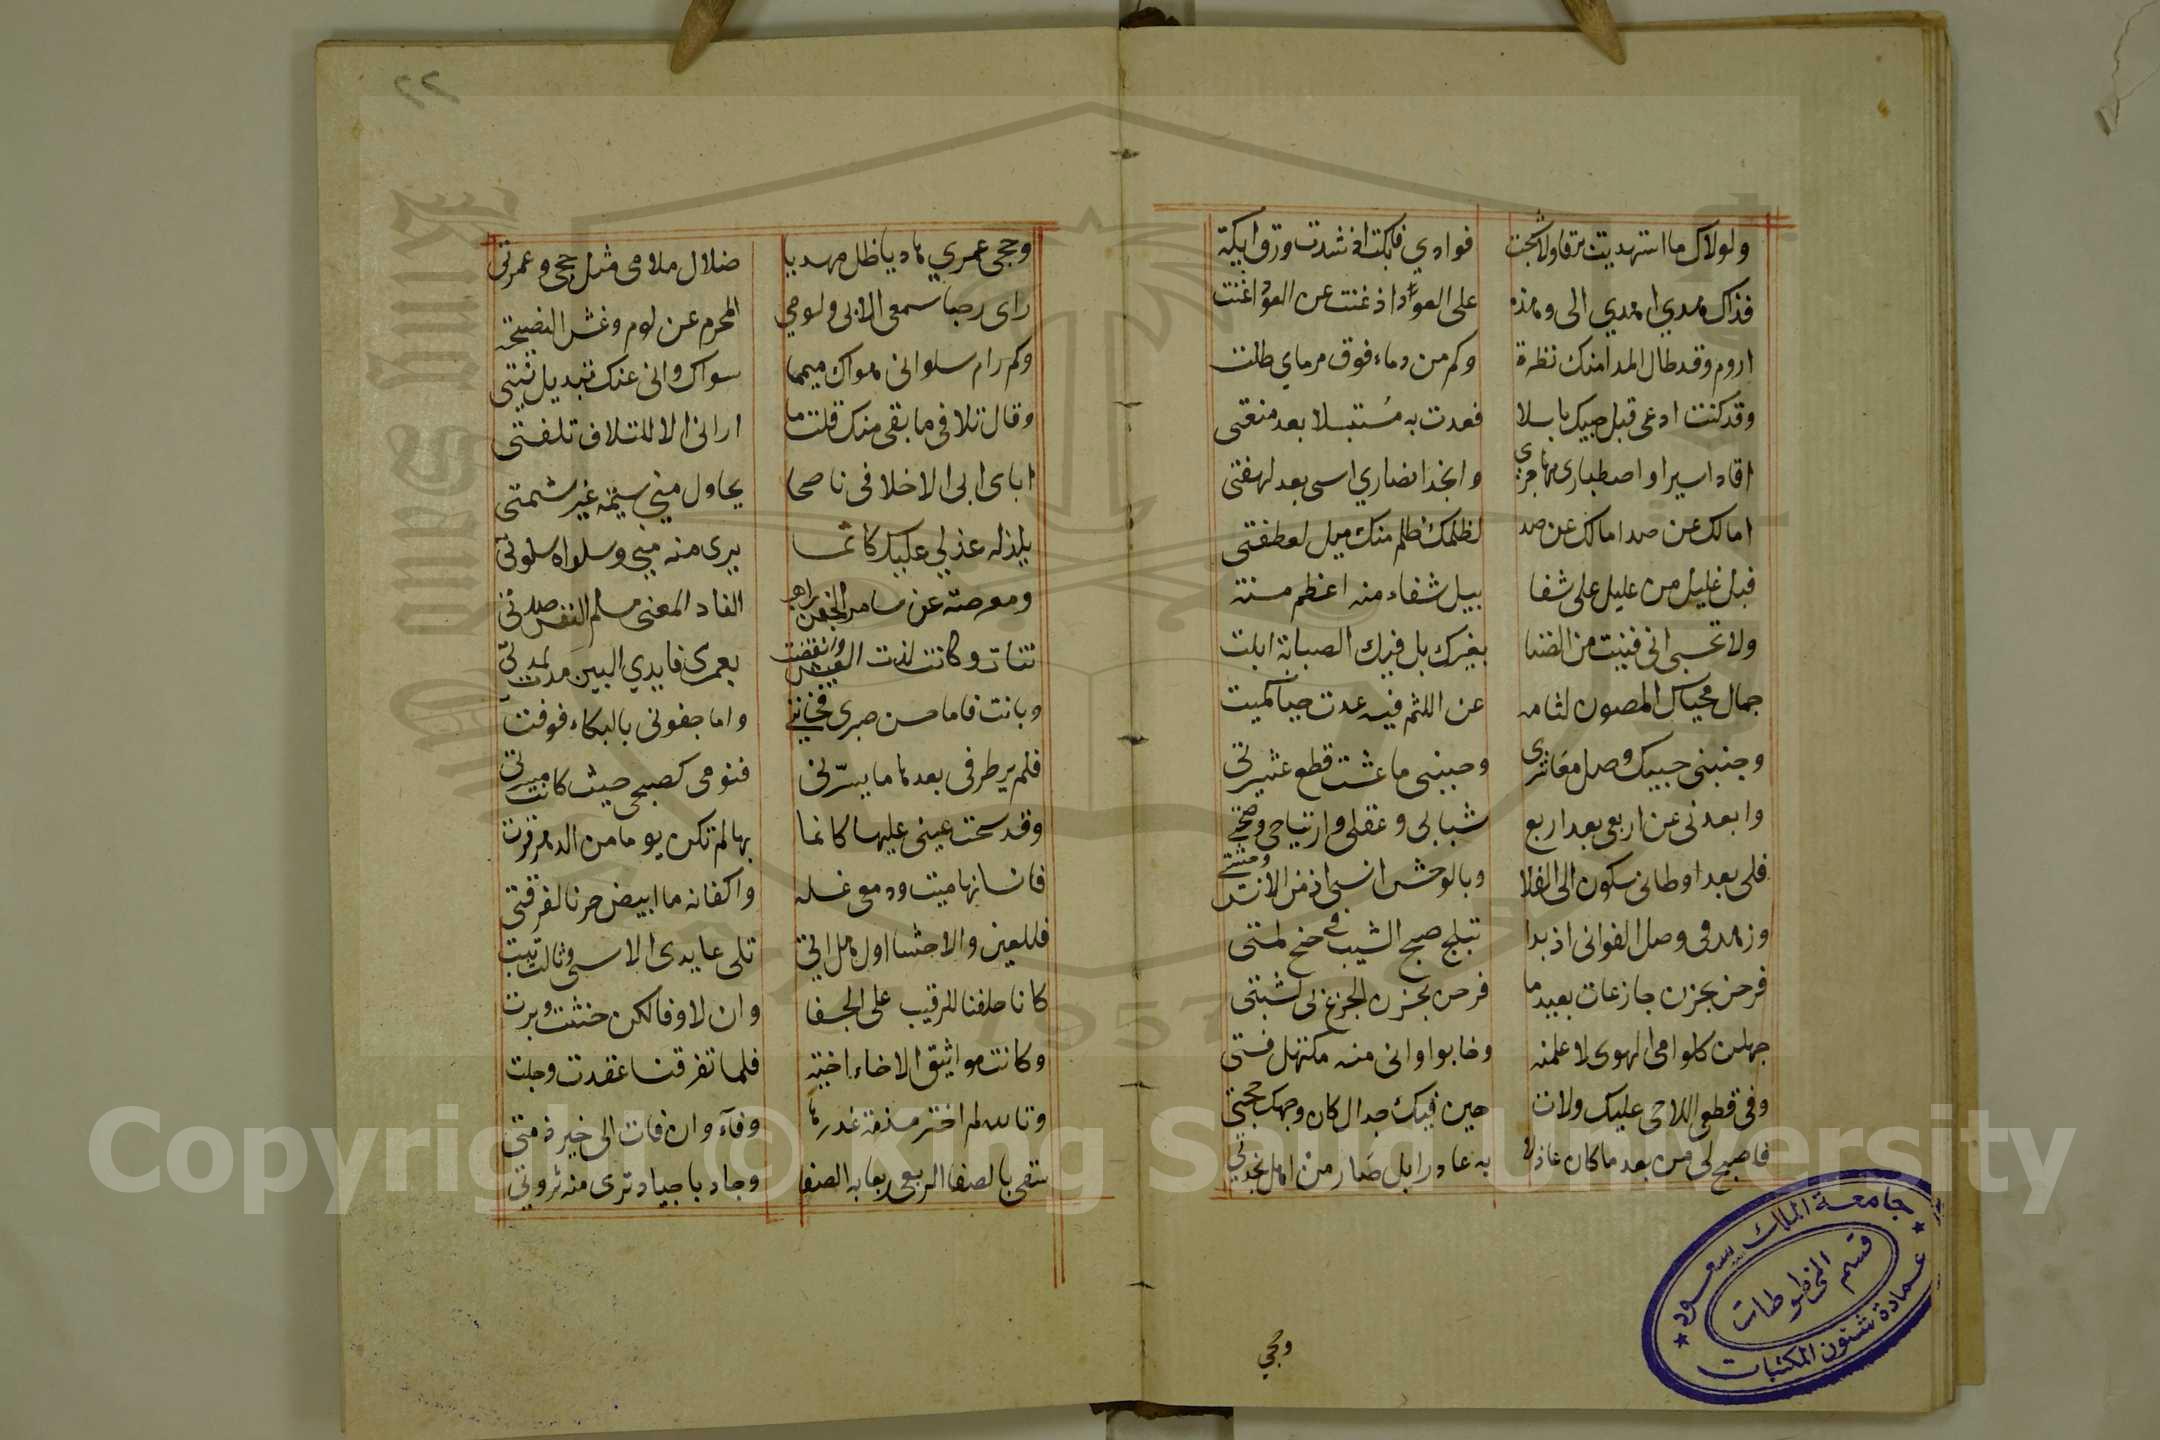 ٢٢
ولولاك ما استهديت برقا ولا شجت فوادي فابكت اذ شدت ورق ايكة
فذاك هدي اهدي الى وهذه على العود اذ غنت عن العود اغنت
اروم وقد طال المدا منك نظرة وكم من دماء دون مرماي طلت
وقد كنت ادعى قبل حبيك باسلا فعدت به مستبسلا بعد منعتى
اقاد اسيرا واصطبارى مهاجرى وانجد انصاري اسى بعد لهفتى
امالك عن صد امالك عن صد لظلمك ظلم منك ميل لعطفتى
فبل غليل من عليل على شفا يبل شفاء منه اعظم منة
ولا تحسبى انى فنيت من الضنا بغيرك بل فيك الصبابة ابلت
جمال محياك المصون لثامه عن اللثم فيه عدت حيا كميت
وجنبنى حبيك وصل معاشرى وحببنى ما عشت قطع عشيرتى
وابعدنى عن اربعى بعد اربع شبابى وعقلى وارتياحى وصحتى
فلى بعد اوطانى سكون الى الفلا وبالوحش انسى اذ من الانس وحشتى
وزهد فى وصل الغوانى اذ بدا تبلج صبح الشيب فى جنح لمتى
فرحن بحزن جازعات بعيد ما فرحن بحزن الجزع لى لشبتى
جهلن كلوامى الهوى لا علمنه وخابوا وانى منه مكتهل فتى
وفى قطعى اللاحى عليك ولات حين فيك جدال كان وجهك حجتى
فاصبح لى من بعد ما كان عاذلا به عاذرا بل صار من اهل نجدتى
وحجى
وحجى عمري هاديا ظل مهديا ضلال ملامى مثل حجى وعمرتى
راى رجبا سمعى الابى ولومي المحرم عن لوم وغش النصيحة
وكم رام سلوانى هواك ميمما سواك وانى عنك تبديل نيتى
وقال تلافى ما بقى منك قلت ما ارانى الا للتلاف تلفتى
اباى ابى الا خلافى ناصحا يحاول مني شيمة غير شيمتى
يلذ له عذلي عليك كانما يرى منه مني وسلواه سلوتى
ومعرضة عن سامر الجفن راهب الفواد المعنى مسلم النفس صدتى
تناءت وكانت لذت العيش وانقضت بعمرى فايدي البين مدت لمدتى
وبانت فاما حسن صبرى فخاننى واما جفونى بالبكاء فوفت
فلم ير طرفى بعدها ما يسرنى فنومى كصبحى حيث كانت مسرتى
وقد سخنت عينى عليها كانها بها لم تكن يوما من الدهر قرت
فانسانها ميت ودمعى غسله واكفانه ما ابيض حزنا لفرقتى
فللعين والاحشا اول هل اتى تلى عايدى الاسى وثالث تبت
كانا حلفنا للرقيب على الجفا وان لا وفا لكن حنثت وبرت
وكانت مواثيق الاخاء اخية فلما تفرقنا عقدت وحلت
وتالله لم اختر مذمة غدرها وفاء وان فاءت الى خير ذمتى
سقى بالصفا الربعى ربعا به الصفا وجاد باجياد ثرى منه ثروتى
جامعة الملك سعود
قسم المخطوطات
عمادة شئون المكتبات
Copyright © King Saud University
King Saud University
1957